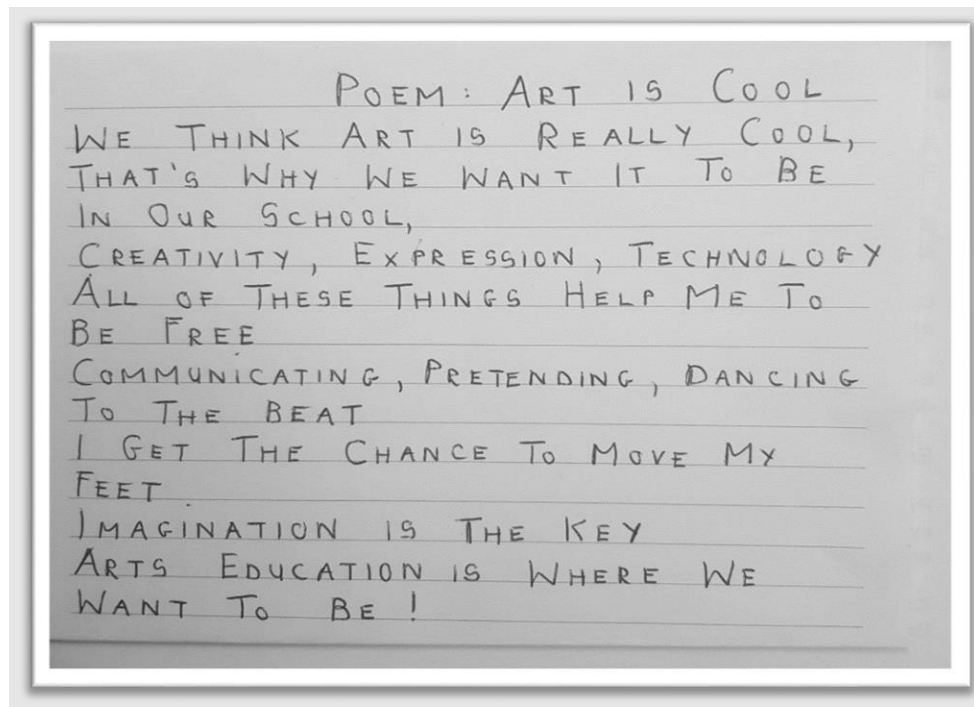 POEM: ART IS COOL
WE THINK ART IS REALLY COOL,
THAT'S WHY WE WANT IT TO BE
IN OUR SCHOOL,
CREATIVITY, EXPRESSION, TECHNOLOGY
ALL OF THESE THINGS HELP ME TO
BE FREE
COMMUNICATING, PRETENDING, DANCING
TO THE BEAT
I GET THE CHANCE TO MOVE MY
FEET
IMAGINATION IS THE KEY
ARTS EDUCATION IS WHERE WE
WANT TO BE!